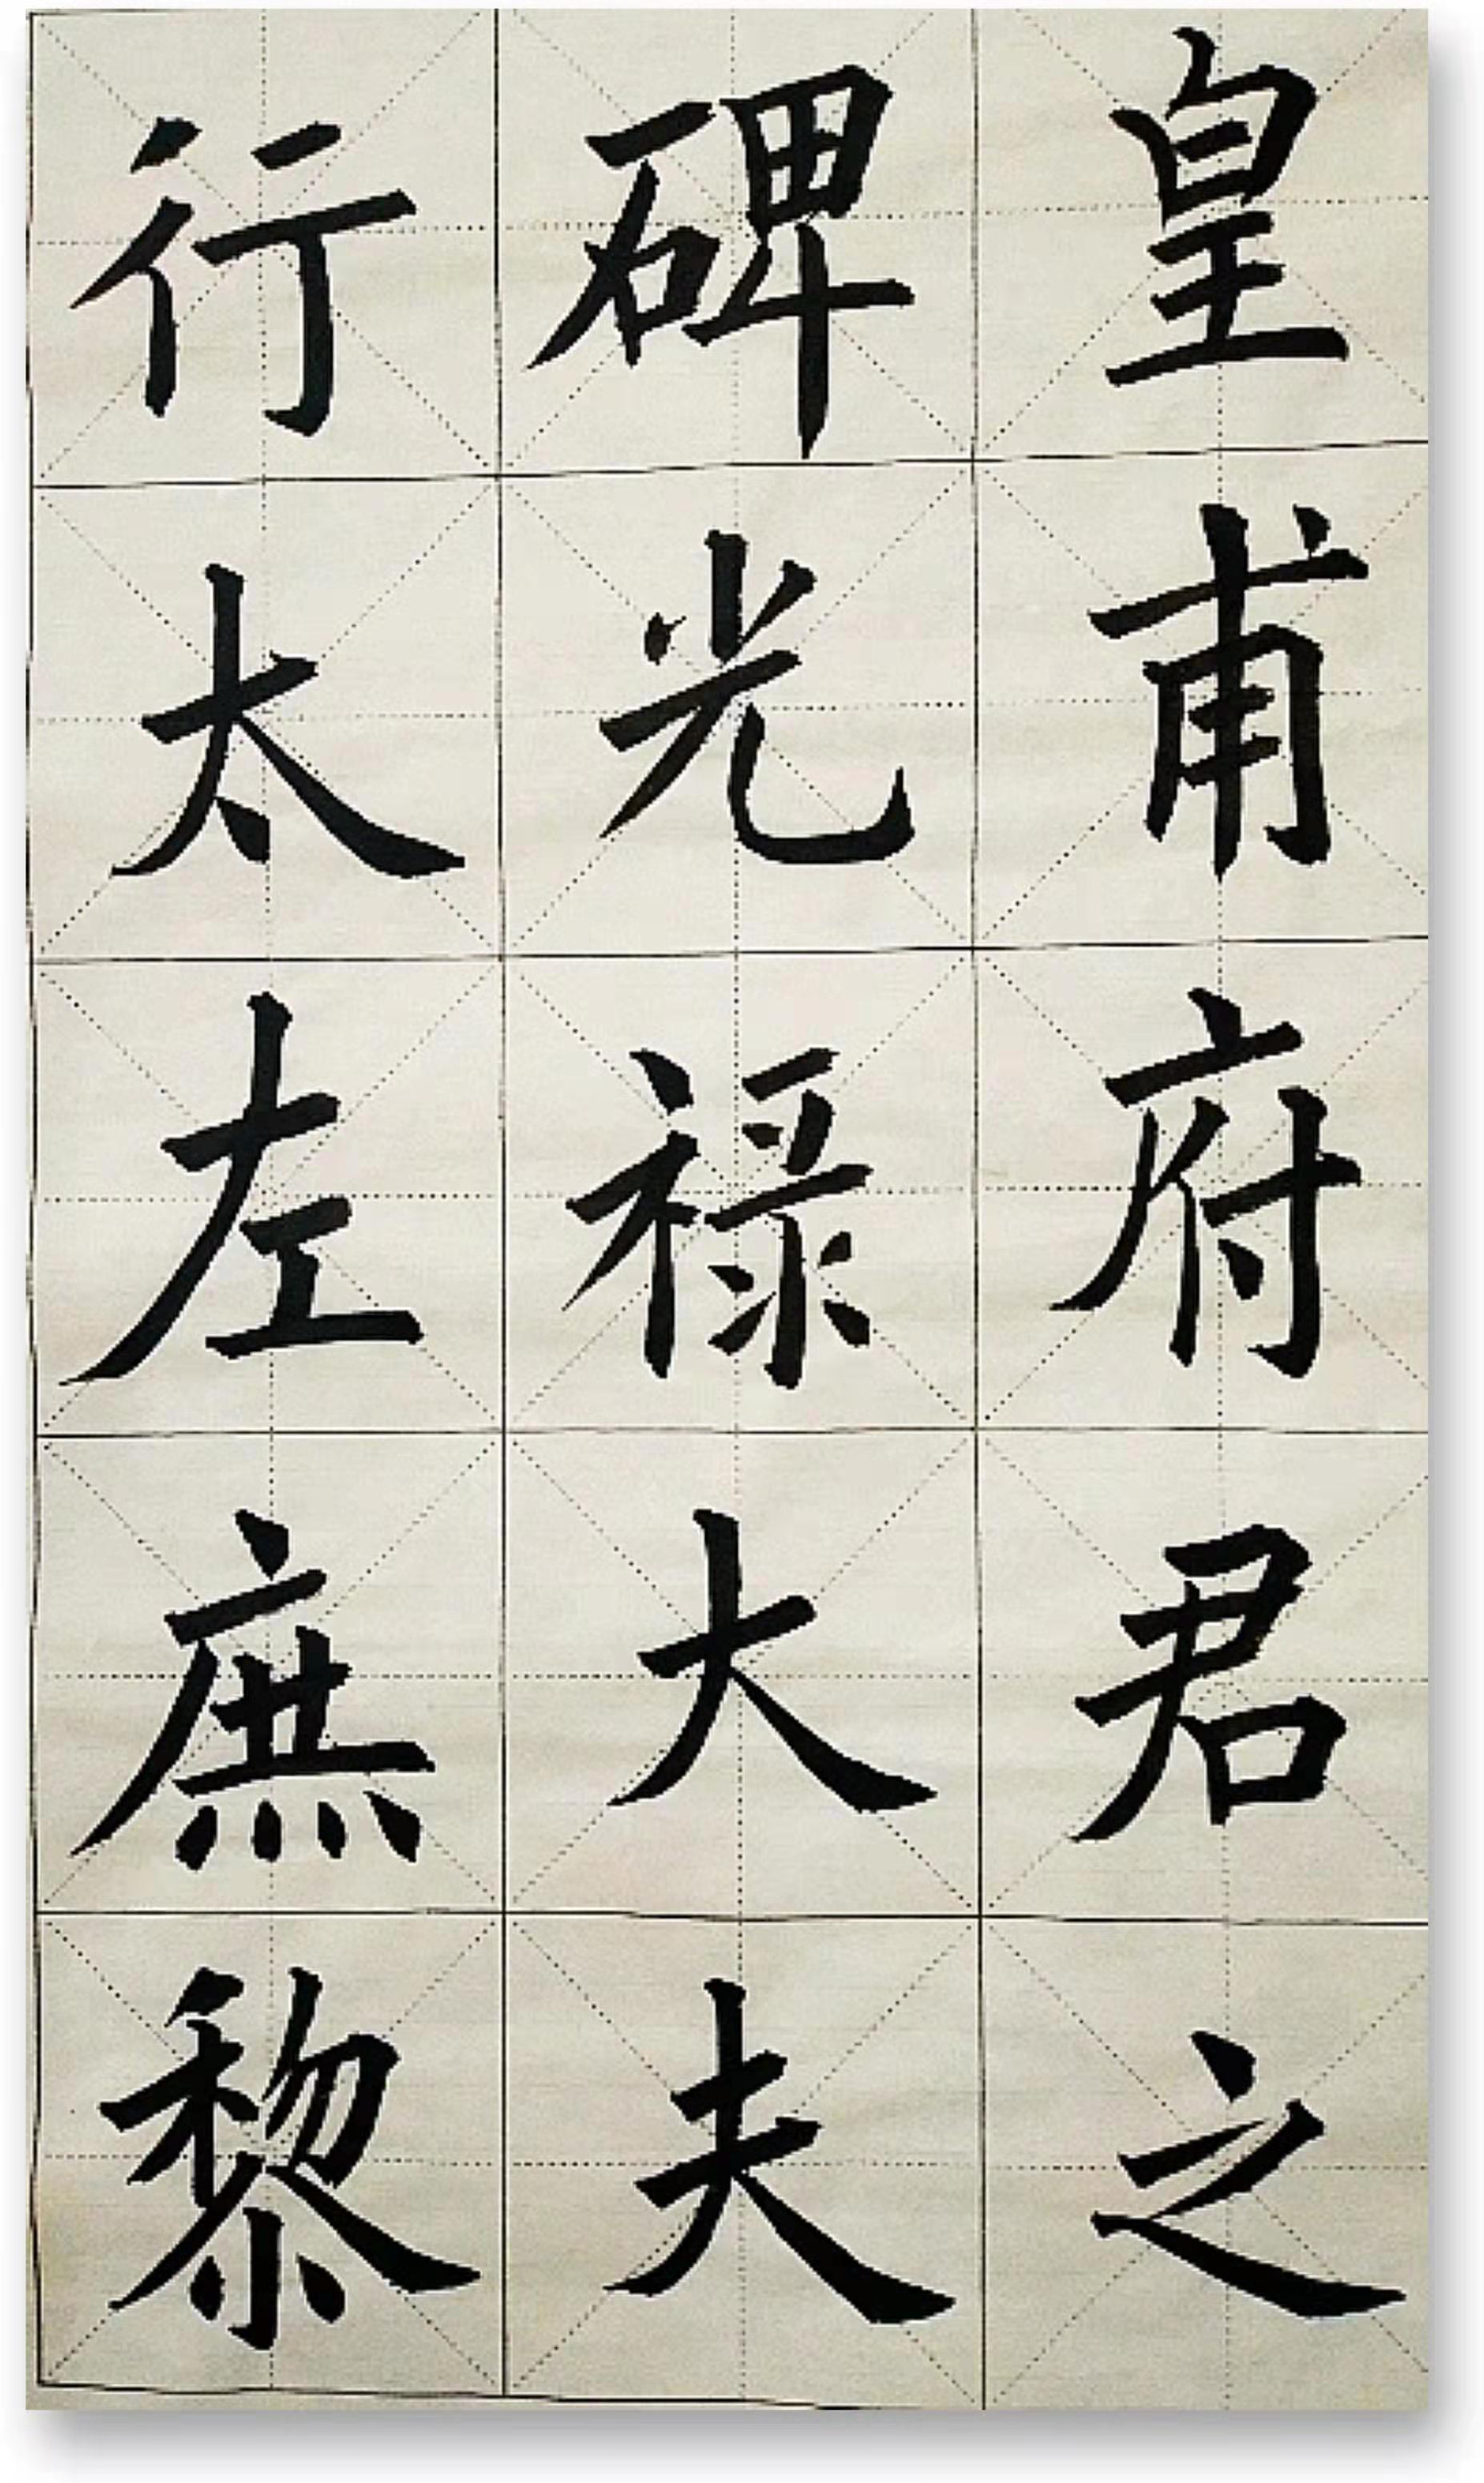 皇甫府君之
碑光禄大夫
行太左庶黎